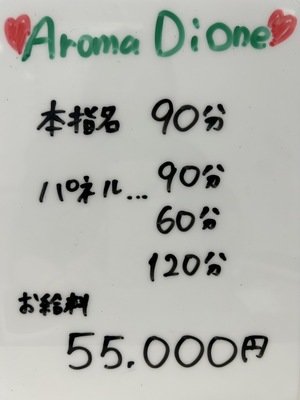 Aroma Dione
本指名 90分
パネル... 90分
60分
120分
お給料
55.000円